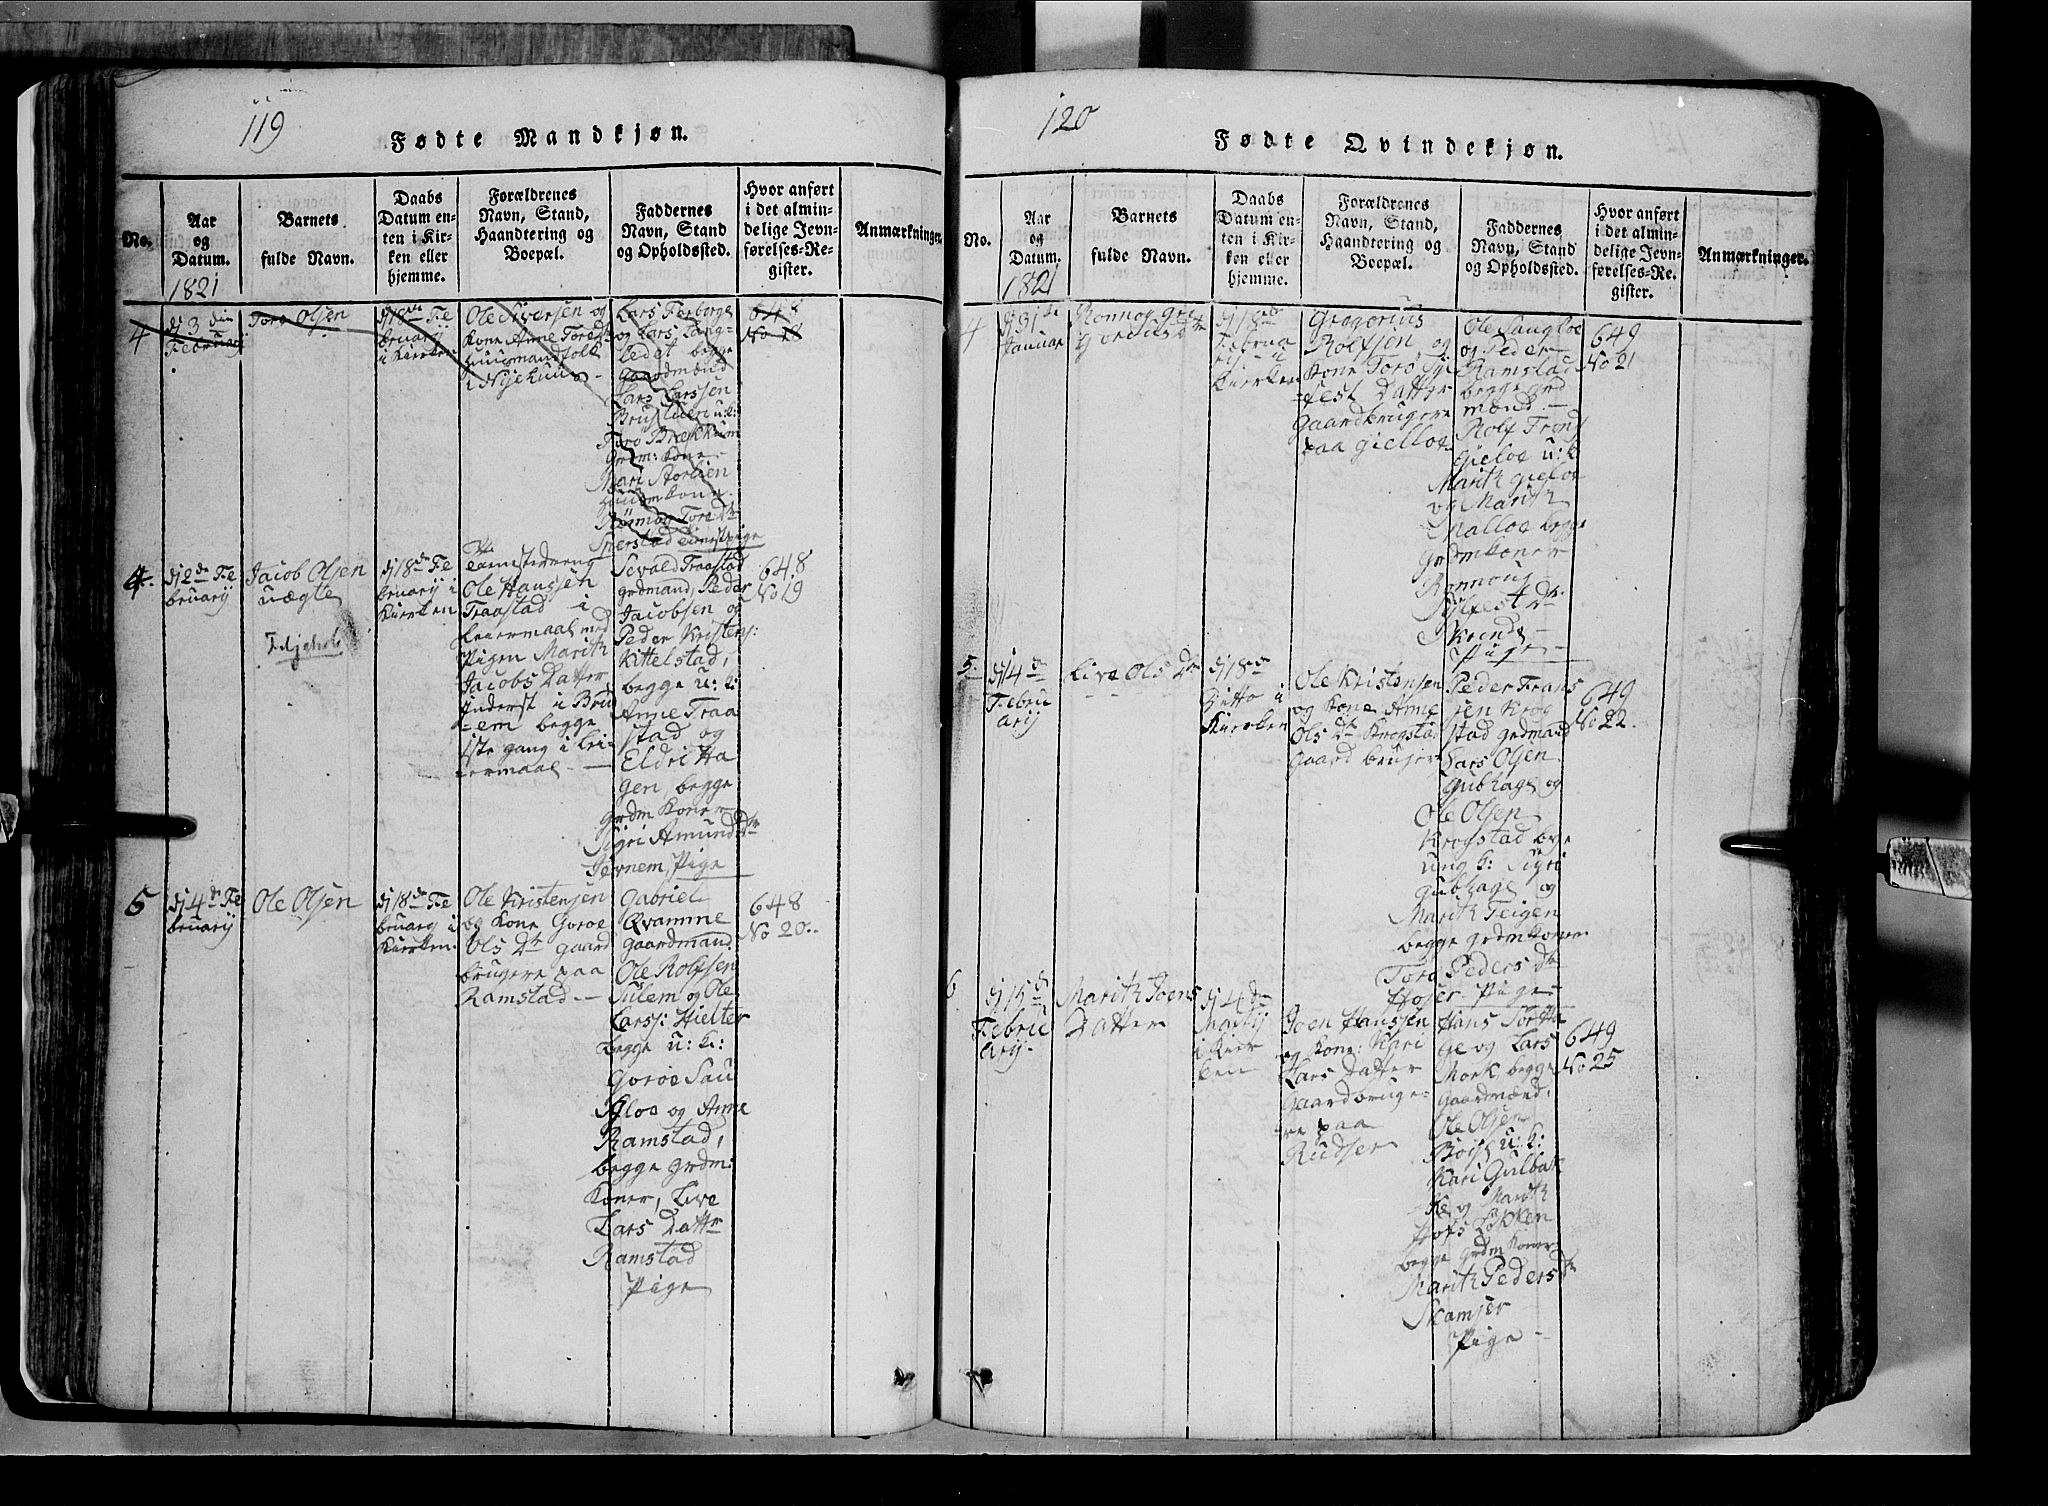 119
Fødte Mandkjøn.
No.
Aar
og
Datum.
1821
Barnets
fulde Navn.
Daabs
Datum en-
ten i Kir-
ken eller
hjemme.
Forældrenes
Navn, Stand,
Haandtering og
Boepæl.
Faddernes
Navn, Stand
og Opholdssted.
Hvor anført
i det almin-
delige Jevn-
førelses-Re-
gister.
Anmærkninger.
4
Dj 3 din
Februarj
Toro Olsen
dj 18de Fe
bruarij
i Kierken
Ole Siversen og
Kone Anne Tores Dtr
Huusmandfolk
i Nijehuus
Lars Forborge
og Lars Tang-
ledet begge
gaardmænd
Lars Larssen
Brustuen u:k:
Toro Brækkum
Grdm: Kone
Mari Storlien
Huusm kone
Rønnog Tores Dtr
Sperstad tienistpige
648
No 18
4.
dj 2de Fe
bruarij
Jacob Olsen
uægte
dj 18de Fe
bruarij i
Kierken
Tienistdreng
Ole Hanssen
Traastad i
Leiermaal med
Pigen Marith
Jacobs Datter
Inderst i Brud
-em begge
1ste gang i Lei
-ermaal
Sevald Traastad
grdmand, Peder
Jacobsen og
Peder Kristens:
Kittelstad,
begge u: k:
Anne Traa
stad og
Eldri Ha
gen, begge
grdm Koner
Sigri Amunds Dtr
Jernem, Pige
648
No 19
5
dj 4de Fe
bruarij
Ole Olsen
dj 18de Fe
bruarij i
Kierken.
Ole Kristensen
og Kone Goroe
Ols Dtr gaard
brugere paa
Ramstad
Gabriel
Qvamme
gaardmand
Ole Rolfsen
Sulem og Ole
Larss: Hielter
begge u: k:
Goroe Sau
gloe og Anne
Ramstad,
begge grdm:
Koner, Live
Lars Datter
Ramstad
Pige
648
No 20.
120
Fødte Qvindekjøn.
No.
Aar
og
Datum.
1821
Barnets
fulde Navn.
Daabs
Datum en-
ten i Kir-
ken eller
hjemme.
Forældrenes
Navn, Stand,
Haandtering og
Boepæl.
Faddernes
Navn, Stand
og Opholdssted.
Hvor anført
i det almin-
delige Jevn-
førelses-Re-
gister.
Anmærkninger.
4
dj 31de
Januar
Ronnog Gre
gories Dtr
dj 18de
Februa
rij i
Kierken
Gregorius
Rolfsen og
Kone Toro Syl
-fest Datter
Gaardbrugere
paa Gielloe
Ole Saugloe
og Peder
Ramstad
begge grd
mænd
Rolf Frons
Gieloe u:k
Marith Gieloe
og Marith
Malloe begge
grdmkoner
Ronnoug
Sylfest Dtr
Pige
649
No 21
5.
dj 4de
Febru
arij
Live Ols Dtr
dj 18de
Ditto i
Kierken
Ole Kristensen
og Kone Anne
Ols Dtr Krogstad
Gaard bruger
Peder Frans
sen Krog
stad grdmand
Lars Olsen
Gubhage og
Ole Olsen
Krogstad beg
ung k: Sigri
Gubhage og
Marith Teigen
begge grdmkoner
Toro Peders Dtr
Pige
649
No 22
6
dj 15de
Februe
arij
Marith Joens
Datter
dj 4de
Martij
i Kier
ken
Joen Hanssen
og Kone: Kari
Lars Datter
Gaardbruge-
re paa
Rudser
Hans Sortha
ge og Lars
Mork, begge
gaardmænd,
Ole Olsen
u: k:
Kari Gulbak
ke og Marith
Hofs Løkken
begge grdm koner
Marith Peders Dtr
Skamser
Pige
649
No 25